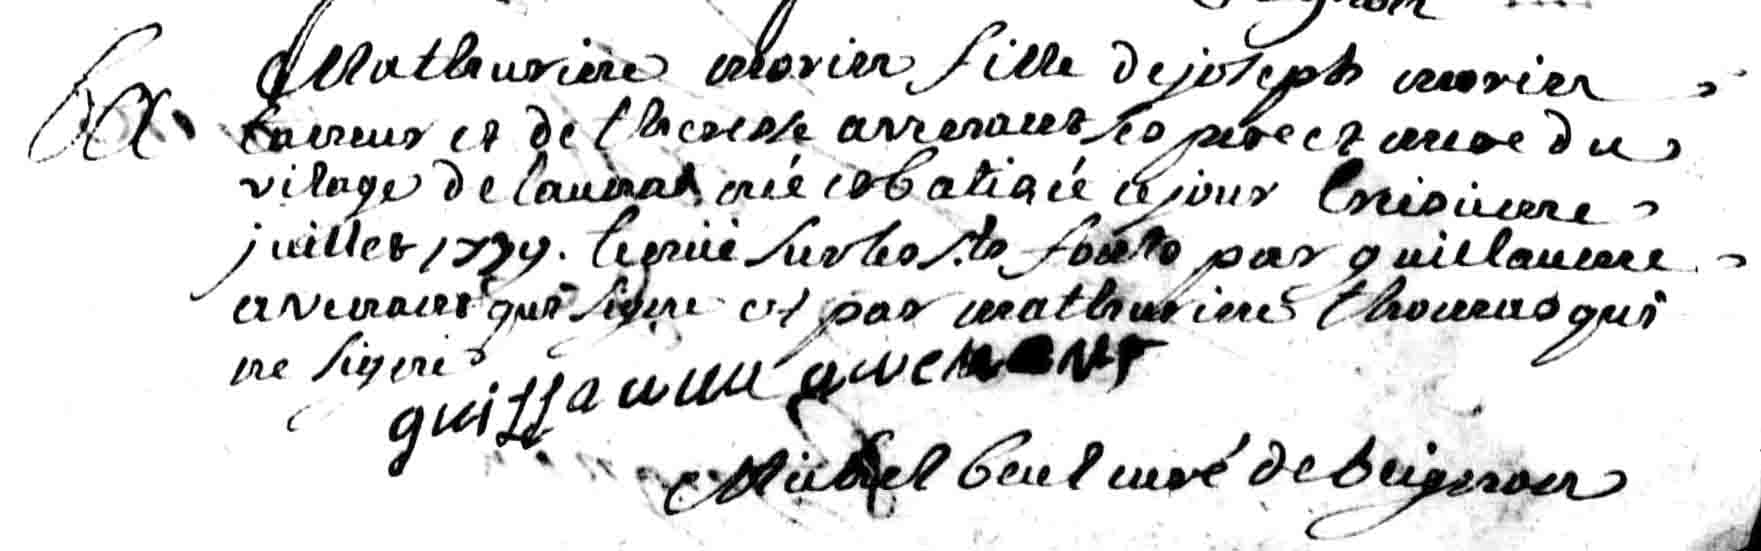 beignon
ba. Mathurine morin fille de joseph morin
laineur et de therese avenant ses pere et mere du
vilage de launai née et batisée ce jour treisieme
juillet 1739. tenuë sur les sts fonts par guillaume
avenant qui signe et par mathurine thomas qui
ne signe
guillaume avenant
Michel beul curé de beignon